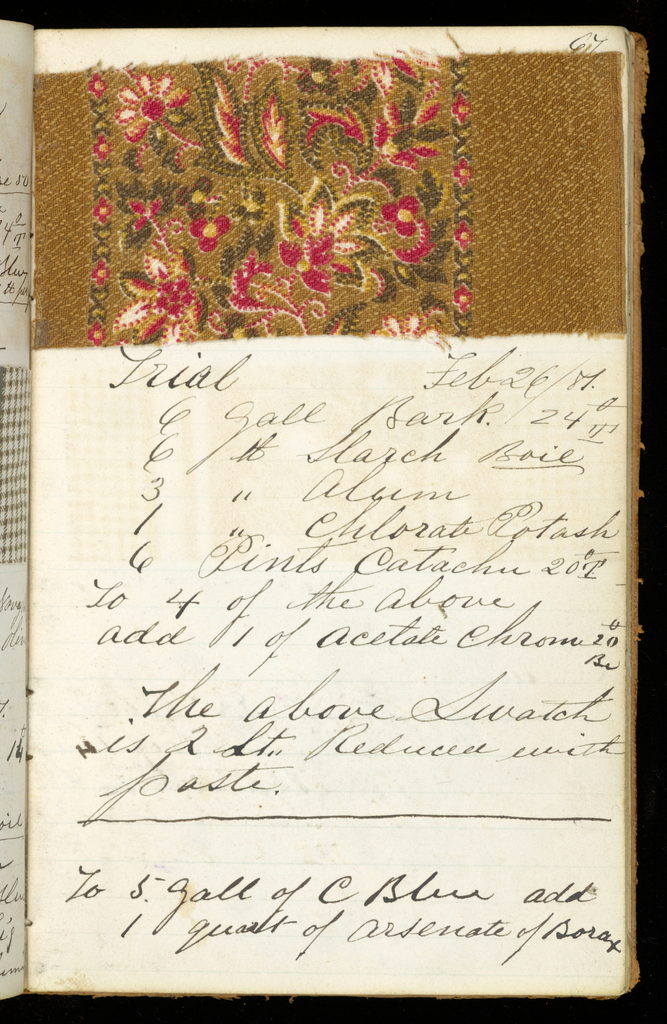 67
Trial Feb 26/81.
6 Gall Bark. 24° T
6 lb Starch Boil
3 " Alum
1 " Chlorate Potash
6 Pints Catachu 20° T
To 4 of the above
add 1 of Acetate Chrome 20° Be
The above Swatch
is 2 lt. Reduced with
paste.
To 5. Gall of C Blue add
1 quart of Arsenate of Borax